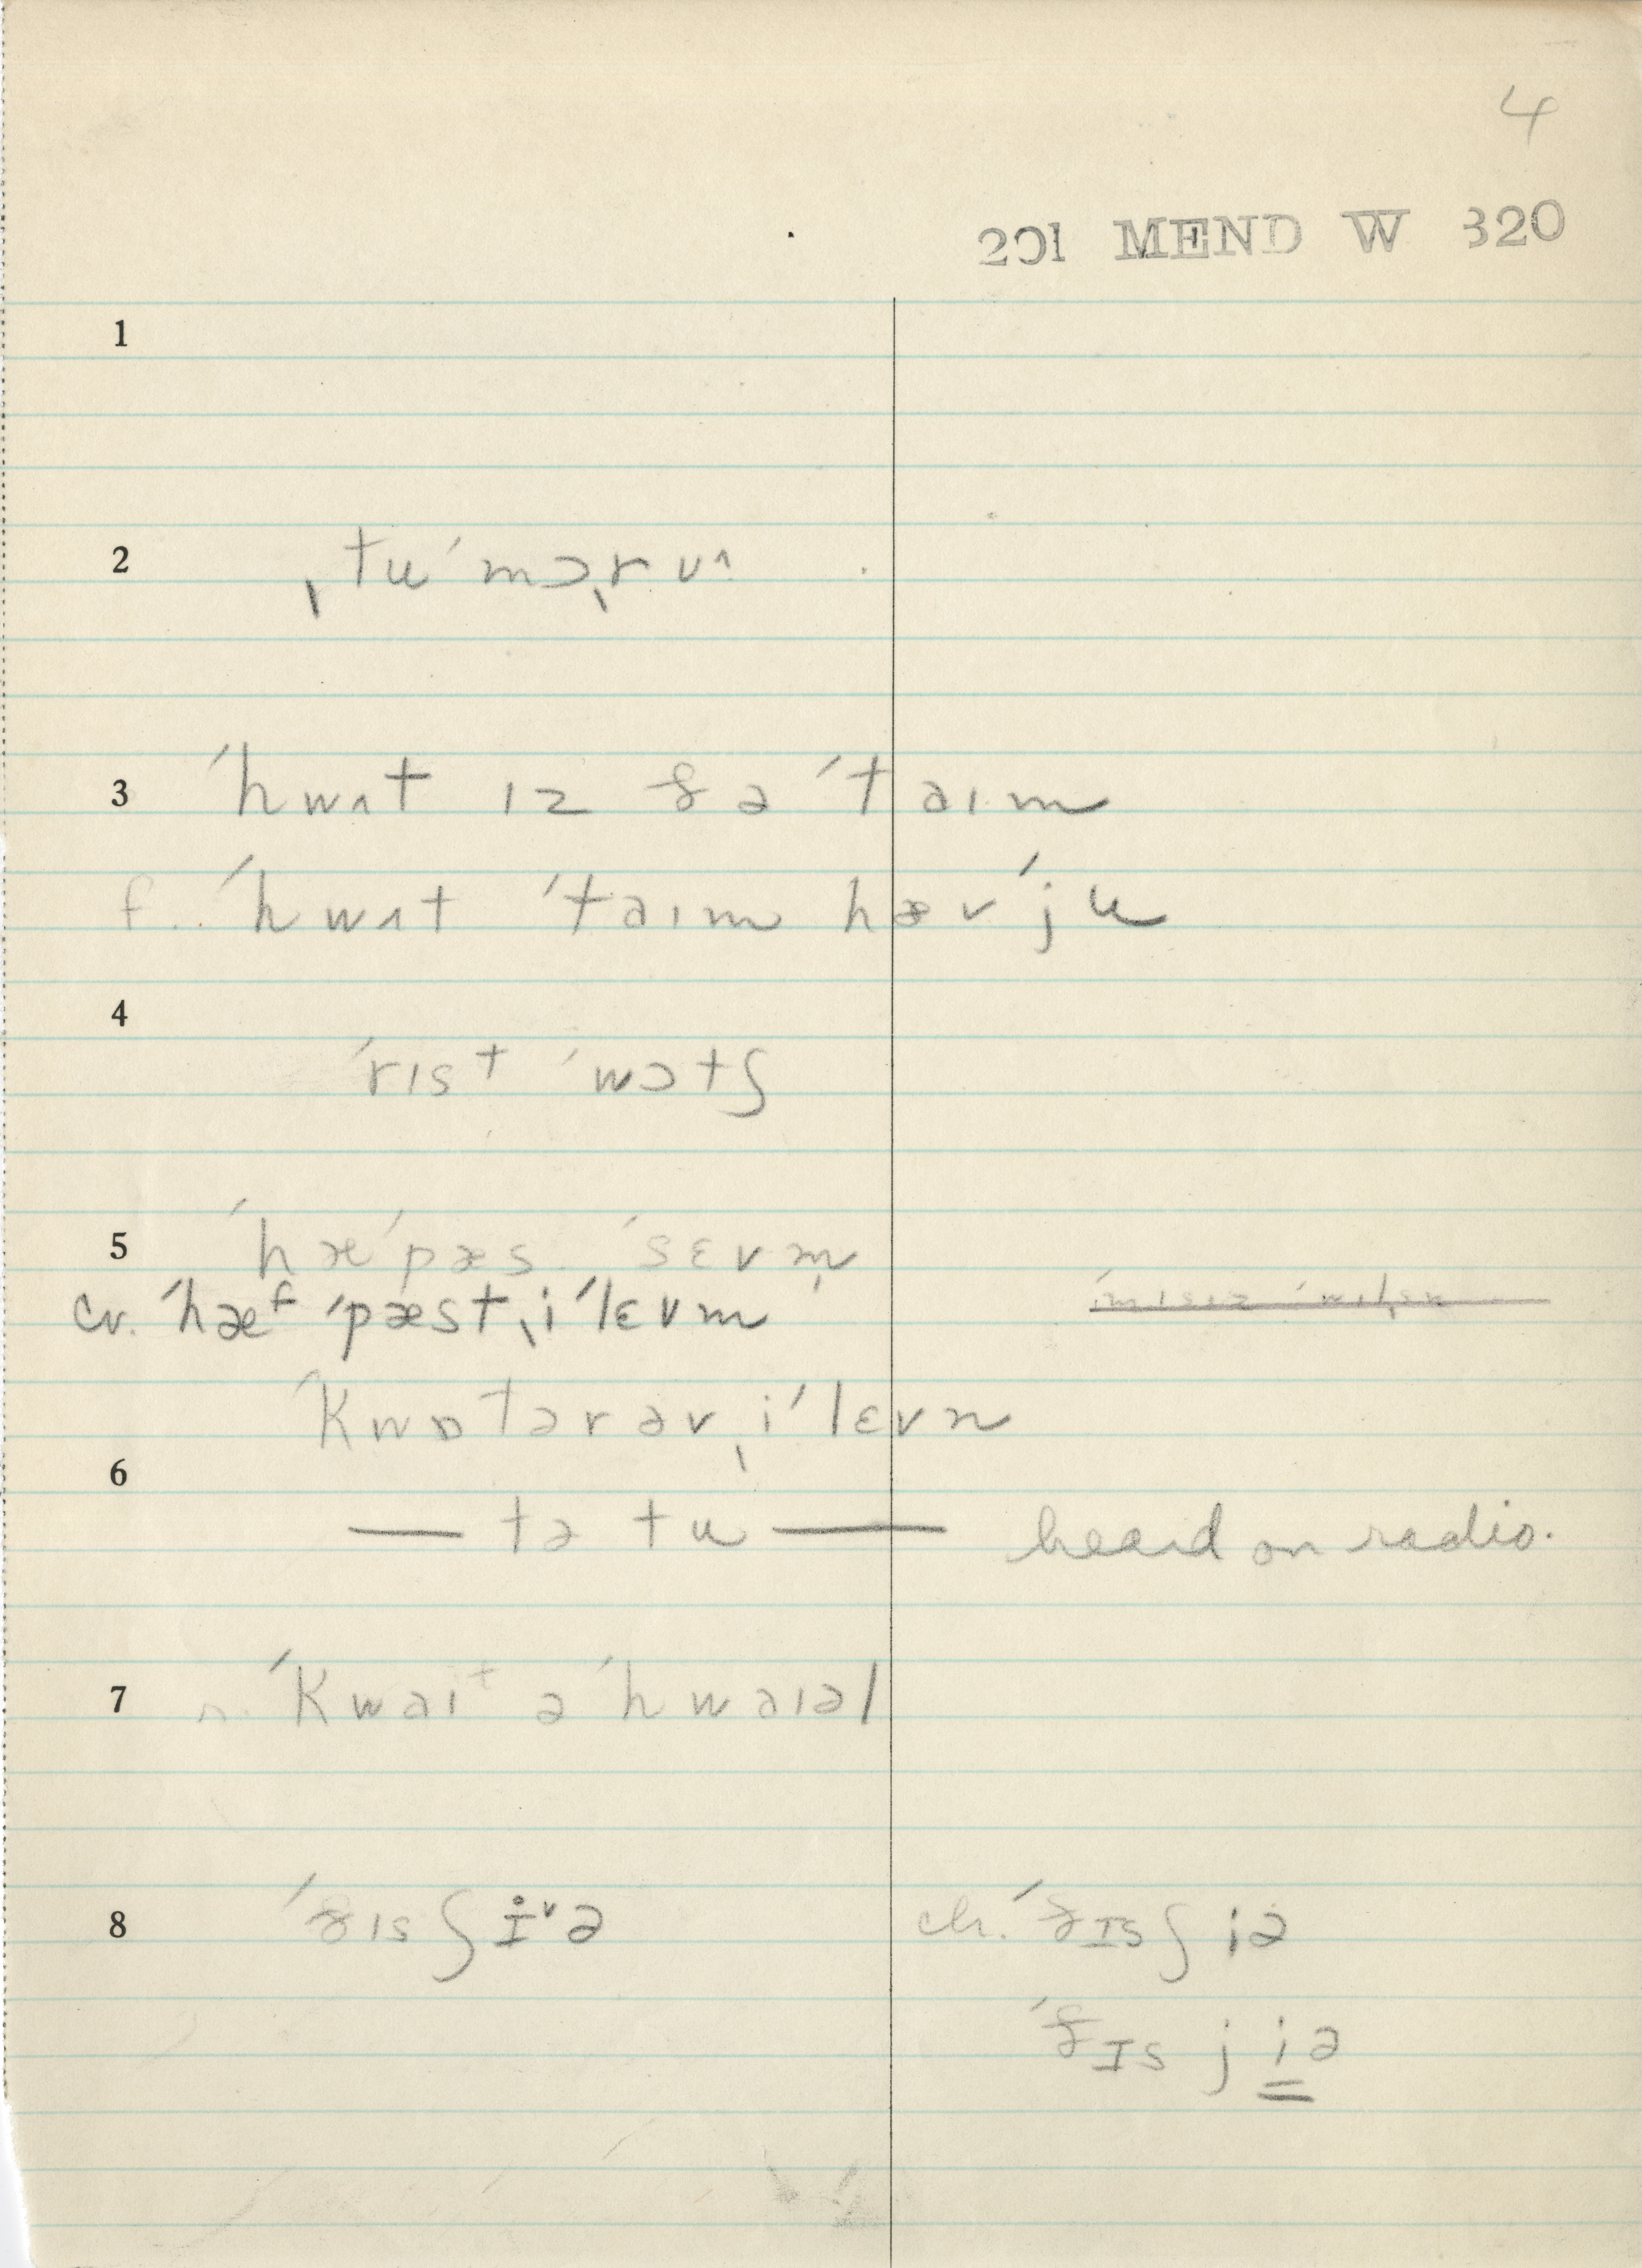 4
201 MEND W 320
1
2 ˌtuˈmɔˌrʊ^
3 ˈhwʌt ɪz ðə ˈtaɪm
f. ˈhwʌt ˈtaɪm hævˈju
4
ˈrɪst ˈwɔtʃ
5 ˈhæˈpæs ˈsɛvm̩
cv. ˈhæᶠ ˈpæst ˌiˈlɛvm
ˈkwɒtərəv ˌiˈlɛvn
6
— tə tu — heard on radio.
7 r. ˈkwaɪᵗ ə ˈhwaɪəl
8 ˈðɪsʃi̊ᵛə ch. ˈðɪsʃiə
ˈðɪsjiə